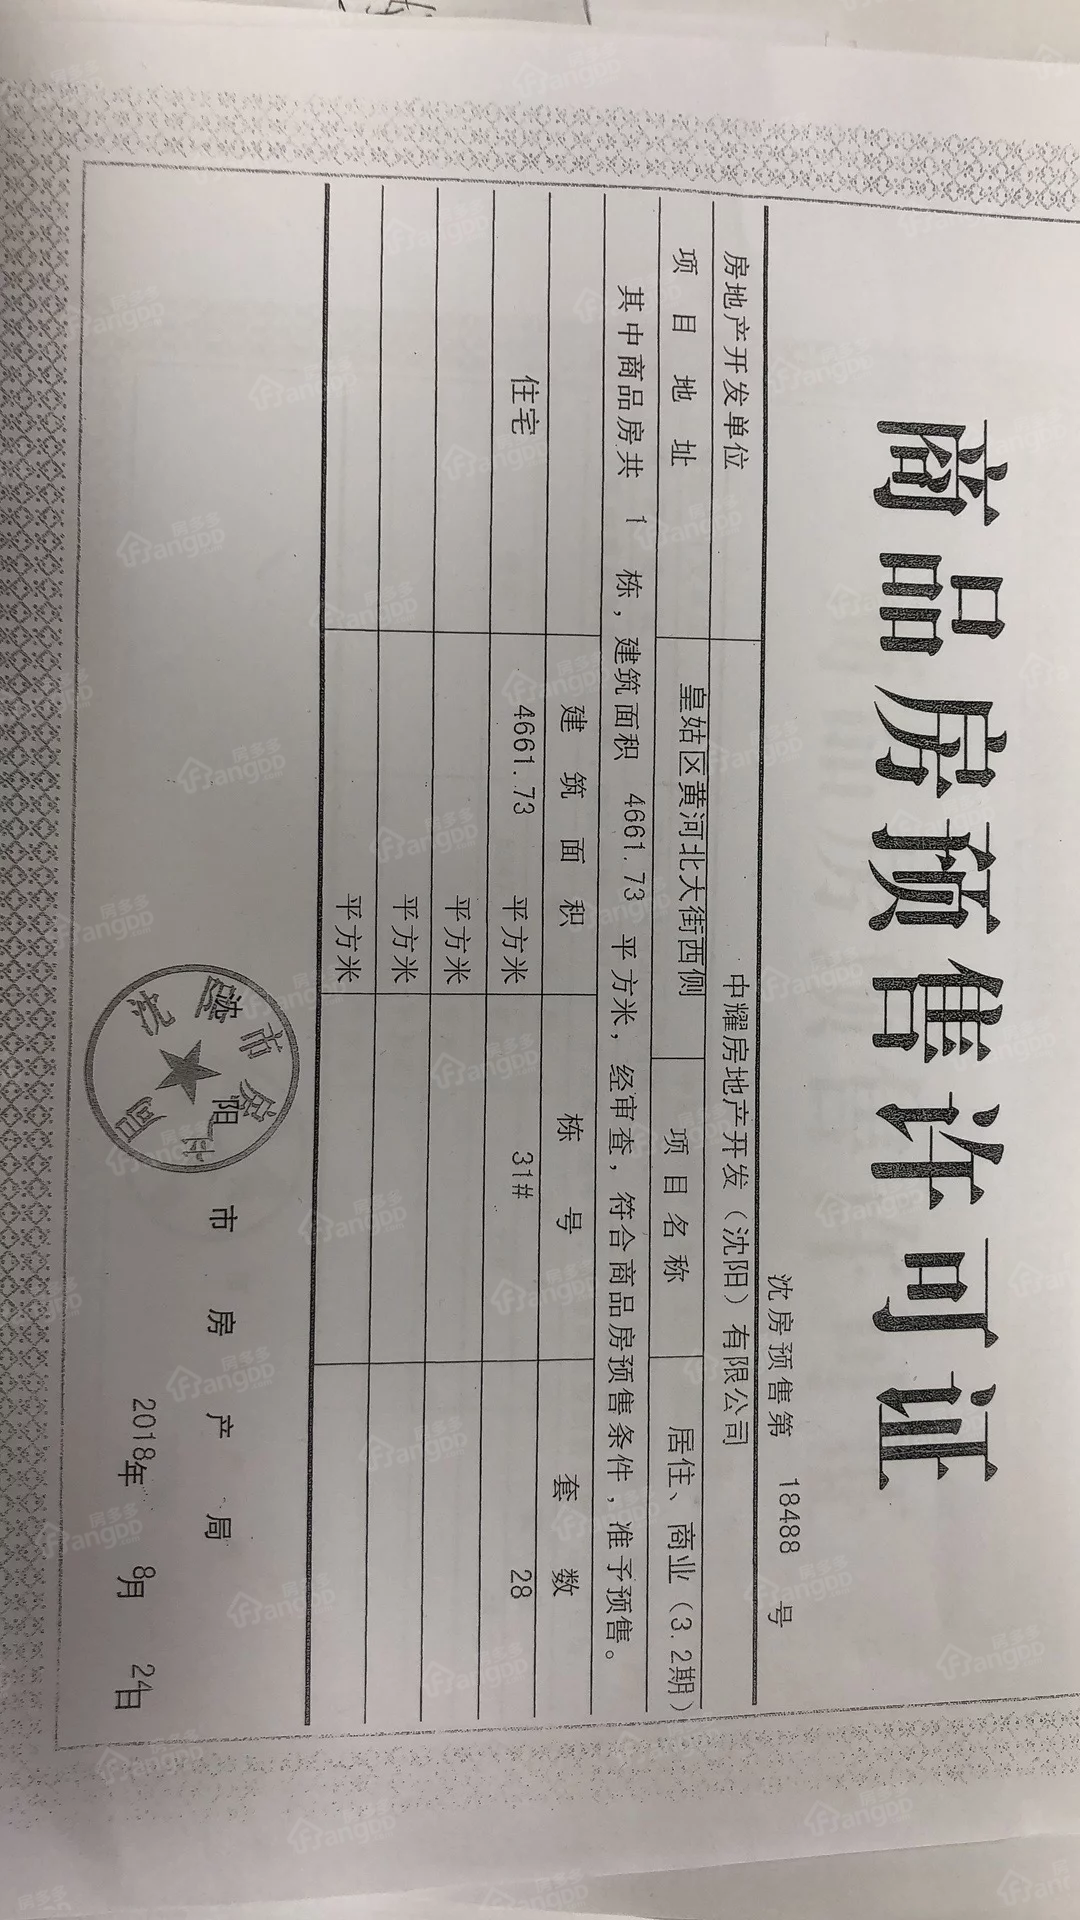 商品房预售许可证
沈房预售第 18488 号
房地产开发单位 中耀房地产开发（沈阳）有限公司
项目地址 皇姑区黄河北大街西侧 项目名称 居住、商业（3.2期）
其中商品房共 1 栋，建筑面积 4661.73 平方米，经审查，符合商品房预售条件，准予预售。
建筑面积 栋号 套数
住宅 4661.73 平方米 31# 28
平方米
平方米
平方米
阳市房产局
2018年 8月 24日
房多多
Fangdd